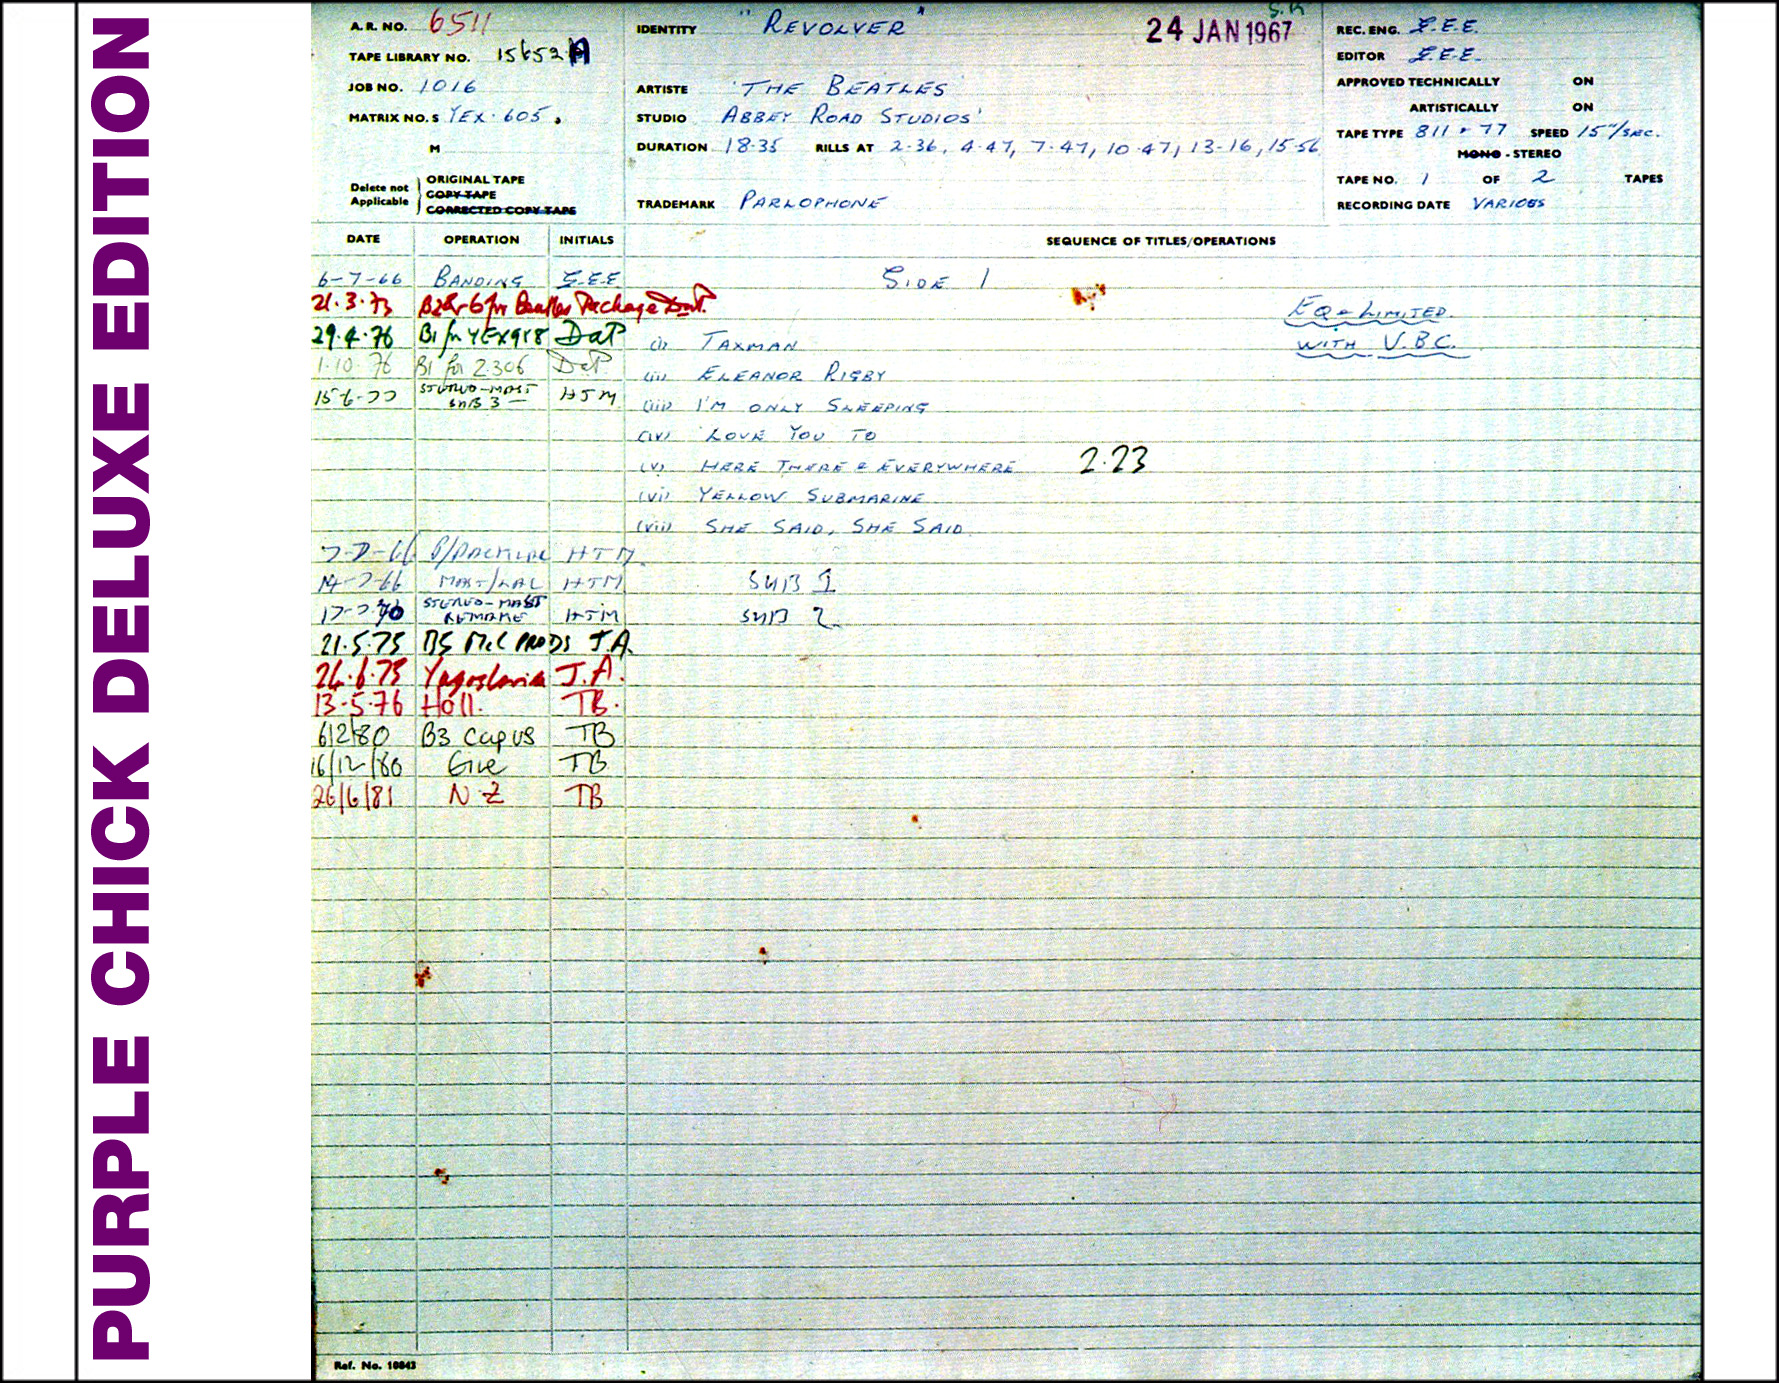 PURPLE CHICK DELUXE EDITION
A.R. NO. 6511
TAPE LIBRARY NO. 15652 A
JOB NO. 1016
MATRIX NO.S YEX·605.
M
Delete not Applicable
ORIGINAL TAPE
COPY TAPE
CORRECTED COPY TAPE
IDENTITY "REVOLVER" 24 JAN 1967
ARTISTE 'THE BEATLES'
STUDIO ABBEY ROAD STUDIOS'
DURATION 18·35 RILLS AT 2·36, 4·47, 7·47, 10·47, 13-16, 15·56
TRADEMARK PARLOPHONE
REC. ENG. E.E.E.
EDITOR E.E.E.
APPROVED TECHNICALLY ON
ARTISTICALLY ON
TAPE TYPE 811 77 SPEED 15"/SEC.
MONO - STEREO
TAPE NO. 1 OF 2 TAPES
RECORDING DATE VARIOUS
DATE OPERATION INITIALS SEQUENCE OF TITLES/OPERATIONS
6-7-66 BANDING E.E.E SIDE 1
21.3.73 for Beatles Package
EQ & LIMITED
WITH V.B.C.
29.4.76 B1 for YEX 918 DaP
(i) TAXMAN
1·10·76 B1 for 2306 DaP
(ii) ELEANOR RIGBY
15-6-77 STEREO-MAST SUB 3 HTM
(iii) I'M ONLY SLEEPING
(iv) LOVE YOU TO
(v) HERE THERE & EVERYWHERE 2·23
(vi) YELLOW SUBMARINE
(vii) SHE SAID, SHE SAID
7-7-66 HTM
14-7-66 MAST/LAC HTM SUB 1
17-7-70 STEREO-MAST REMAKE HTM SUB 2
21.5.75 PRODS J.A.
24.6.75 Yugoslavia J.A.
13-5-76 Holl. TB.
6/2/80 B3 TB
16/12/80 Eire TB
26/6/81 N·Z TB
Ref. No. 10843